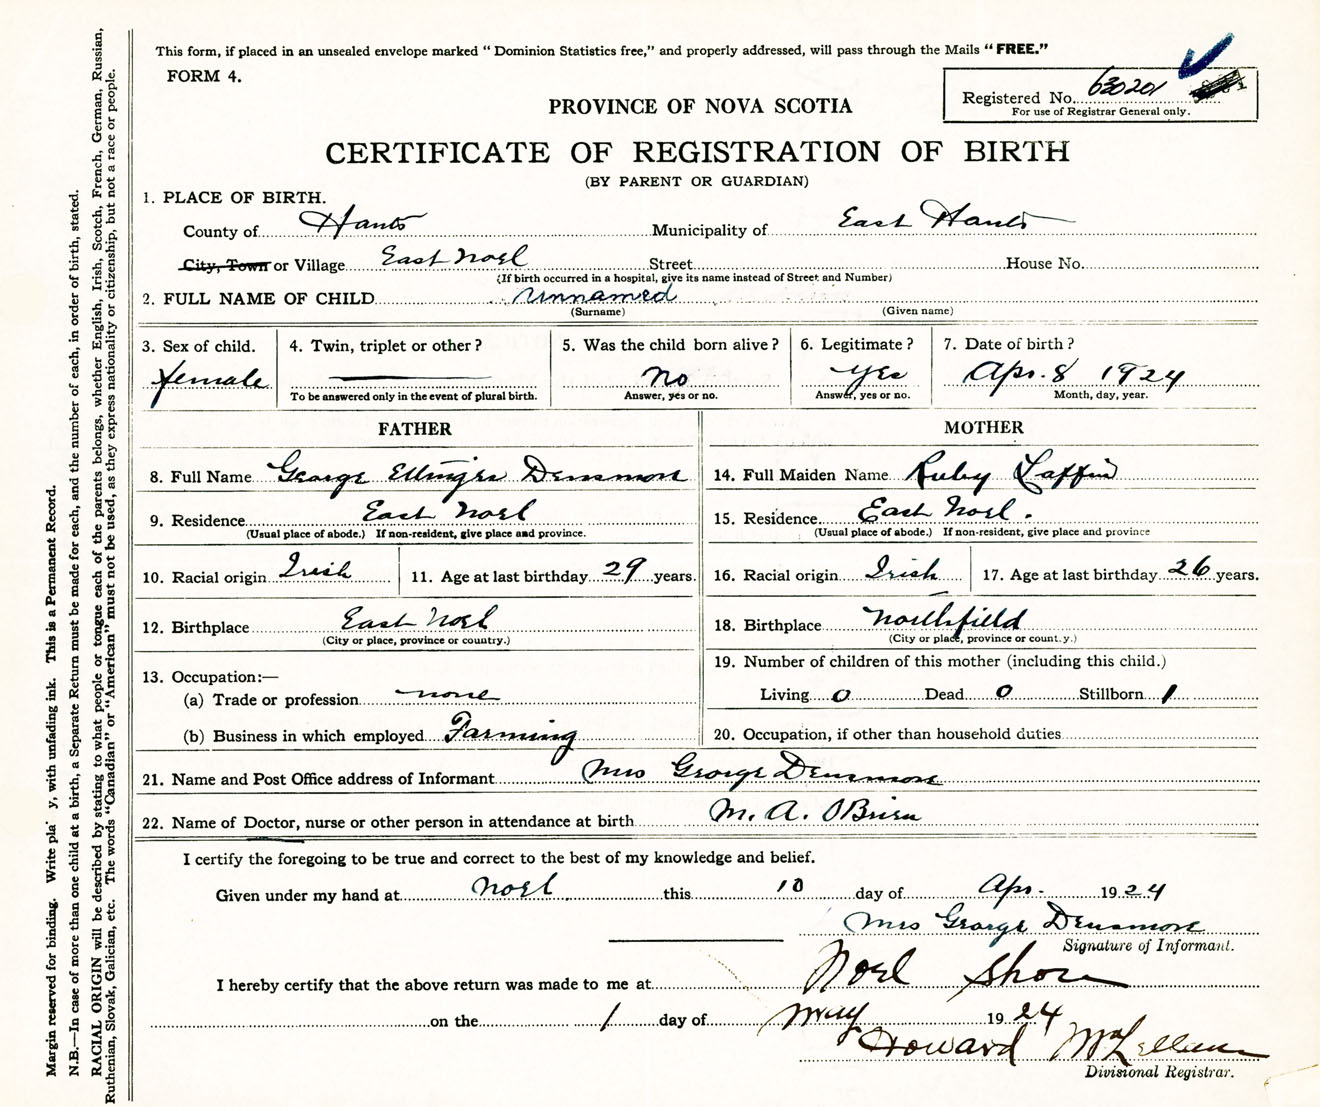 This form, if placed in an unsealed envelope marked "Dominion Statistics free," and properly addressed, will pass through the Mails "FREE."
FORM 4.
Registered No. 630201
For use of Registrar General only.
PROVINCE OF NOVA SCOTIA
CERTIFICATE OF REGISTRATION OF BIRTH
(BY PARENT OR GUARDIAN)
1. PLACE OF BIRTH.
County of Hants Municipality of East Hants
City, Town or Village East Noel Street House No.
(If birth occurred in a hospital, give its name instead of Street and Number)
2. FULL NAME OF CHILD unnamed
(Surname) (Given name)
3. Sex of child. 4. Twin, triplet or other? 5. Was the child born alive? 6. Legitimate? 7. Date of birth?
female no yes Apr. 8 1924
To be answered only in the event of plural birth. Answer, yes or no. Answer, yes or no. Month, day, year.
FATHER
8. Full Name George Ettinger Densmore
9. Residence East Noel
(Usual place of abode.) If non-resident, give place and province.
10. Racial origin Irish 11. Age at last birthday 29 years.
12. Birthplace East Noel
(City or place, province or country.)
13. Occupation:—
(a) Trade or profession none
(b) Business in which employed Farming
MOTHER
14. Full Maiden Name Ruby Laffin
15. Residence East Noel.
(Usual place of abode.) If non-resident, give place and province
16. Racial origin Irish 17. Age at last birthday 26 years.
18. Birthplace Northfield
(City or place, province or count.y.)
19. Number of children of this mother (including this child.)
Living 0 Dead 0 Stillborn 1
20. Occupation, if other than household duties
21. Name and Post Office address of Informant Mrs George Densmore
22. Name of Doctor, nurse or other person in attendance at birth M. A. OBrien
I certify the foregoing to be true and correct to the best of my knowledge and belief.
Given under my hand at Noel this 10 day of Apr. 1924
Mrs George Densmore
Signature of Informant.
I hereby certify that the above return was made to me at Noel Shore
on the 1 day of May 1924
Howard McLellan
Divisional Registrar.
Margin reserved for binding. Write pla y, with unfading ink. This is a Permanent Record.
N.B.—In case of more than one child at a birth, a Separate Return must be made for each, and the number of each, in order of birth, stated.
RACIAL ORIGIN will be described by stating to what people or tongue each of the parents belongs, whether English, Irish, Scotch, French, German, Russian,
Ruthenian, Slovak, Galician, etc. The words "Canadian" or "American" must not be used, as they express nationality or citizenship, but not a race or people.